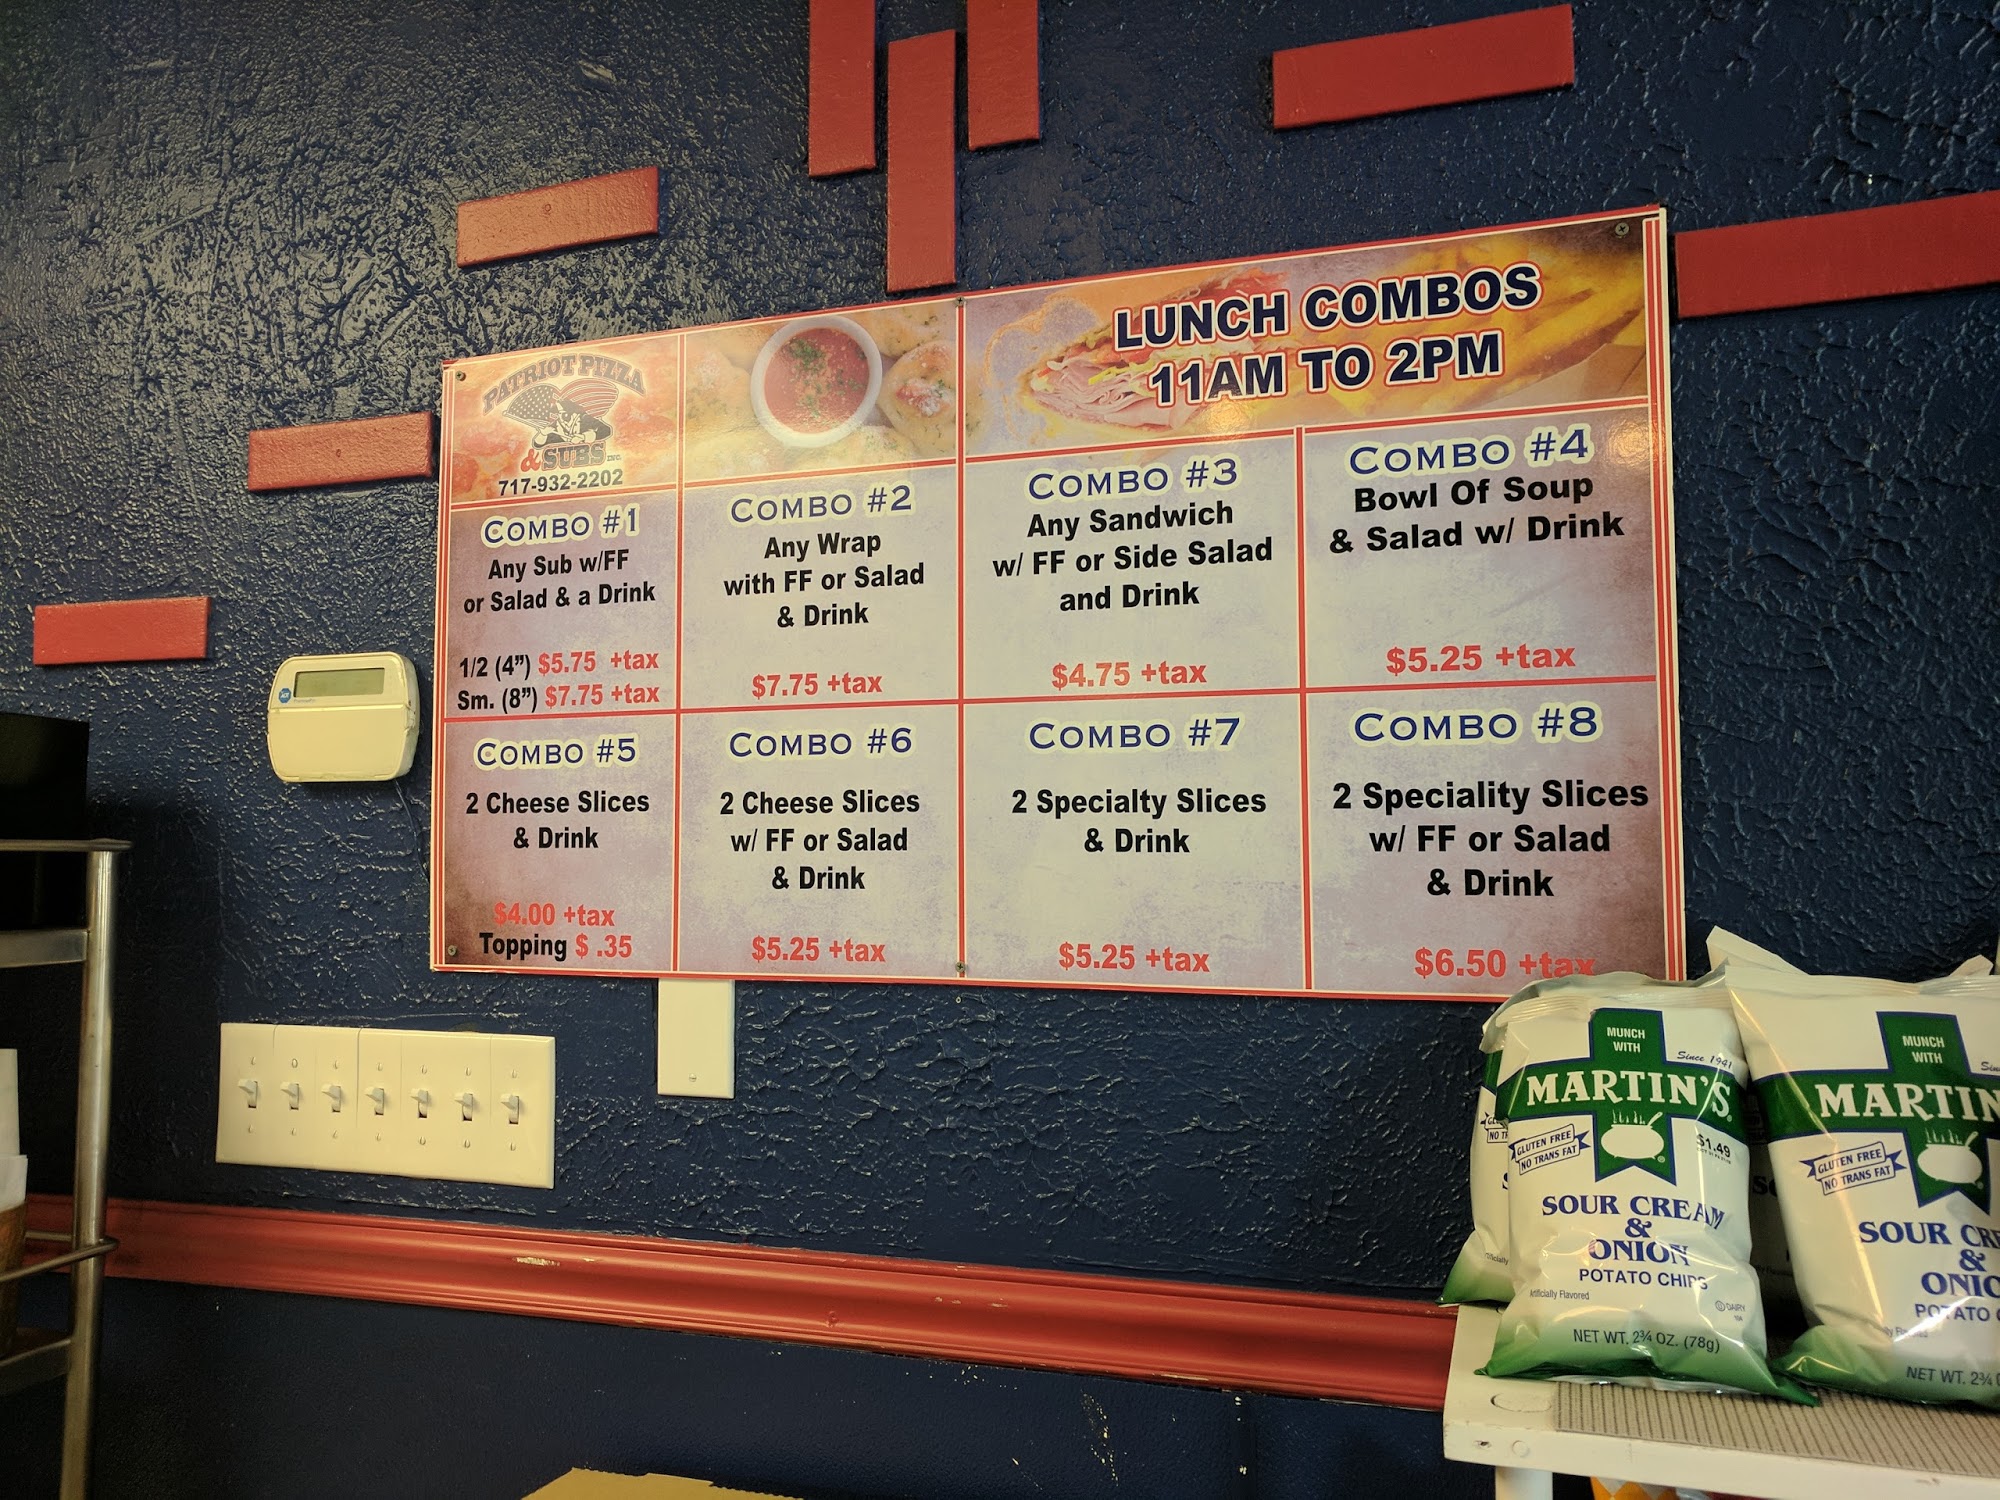 PATRIOT PIZZA
& SUBS INC.
717-932-2202
LUNCH COMBOS
11AM TO 2PM
COMBO #1
Any Sub w/FF
or Salad & a Drink
1/2 (4") $5.75 +tax
Sm. (8") $7.75 +tax
COMBO #2
Any Wrap
with FF or Salad
& Drink
$7.75 +tax
COMBO #3
Any Sandwich
w/ FF or Side Salad
and Drink
$4.75 +tax
COMBO #4
Bowl Of Soup
& Salad w/ Drink
$5.25 +tax
COMBO #5
2 Cheese Slices
& Drink
$4.00 +tax
Topping $ .35
COMBO #6
2 Cheese Slices
w/ FF or Salad
& Drink
$5.25 +tax
COMBO #7
2 Specialty Slices
& Drink
$5.25 +tax
COMBO #8
2 Speciality Slices
w/ FF or Salad
& Drink
$6.50 +tax
MUNCH
WITH
Since 1941
MARTIN'S
$1.49
GLUTEN FREE
NO TRANS FAT
SOUR CREAM
&
ONION
POTATO CHIPS
Artificially Flavored
DAIRY
NET WT. 2¾ OZ. (78g)
MUNCH
WITH
MARTIN
GLUTEN FREE
NO TRANS FAT
SOUR CRE
&
ONIO
POTATO
NET WT. 2¾